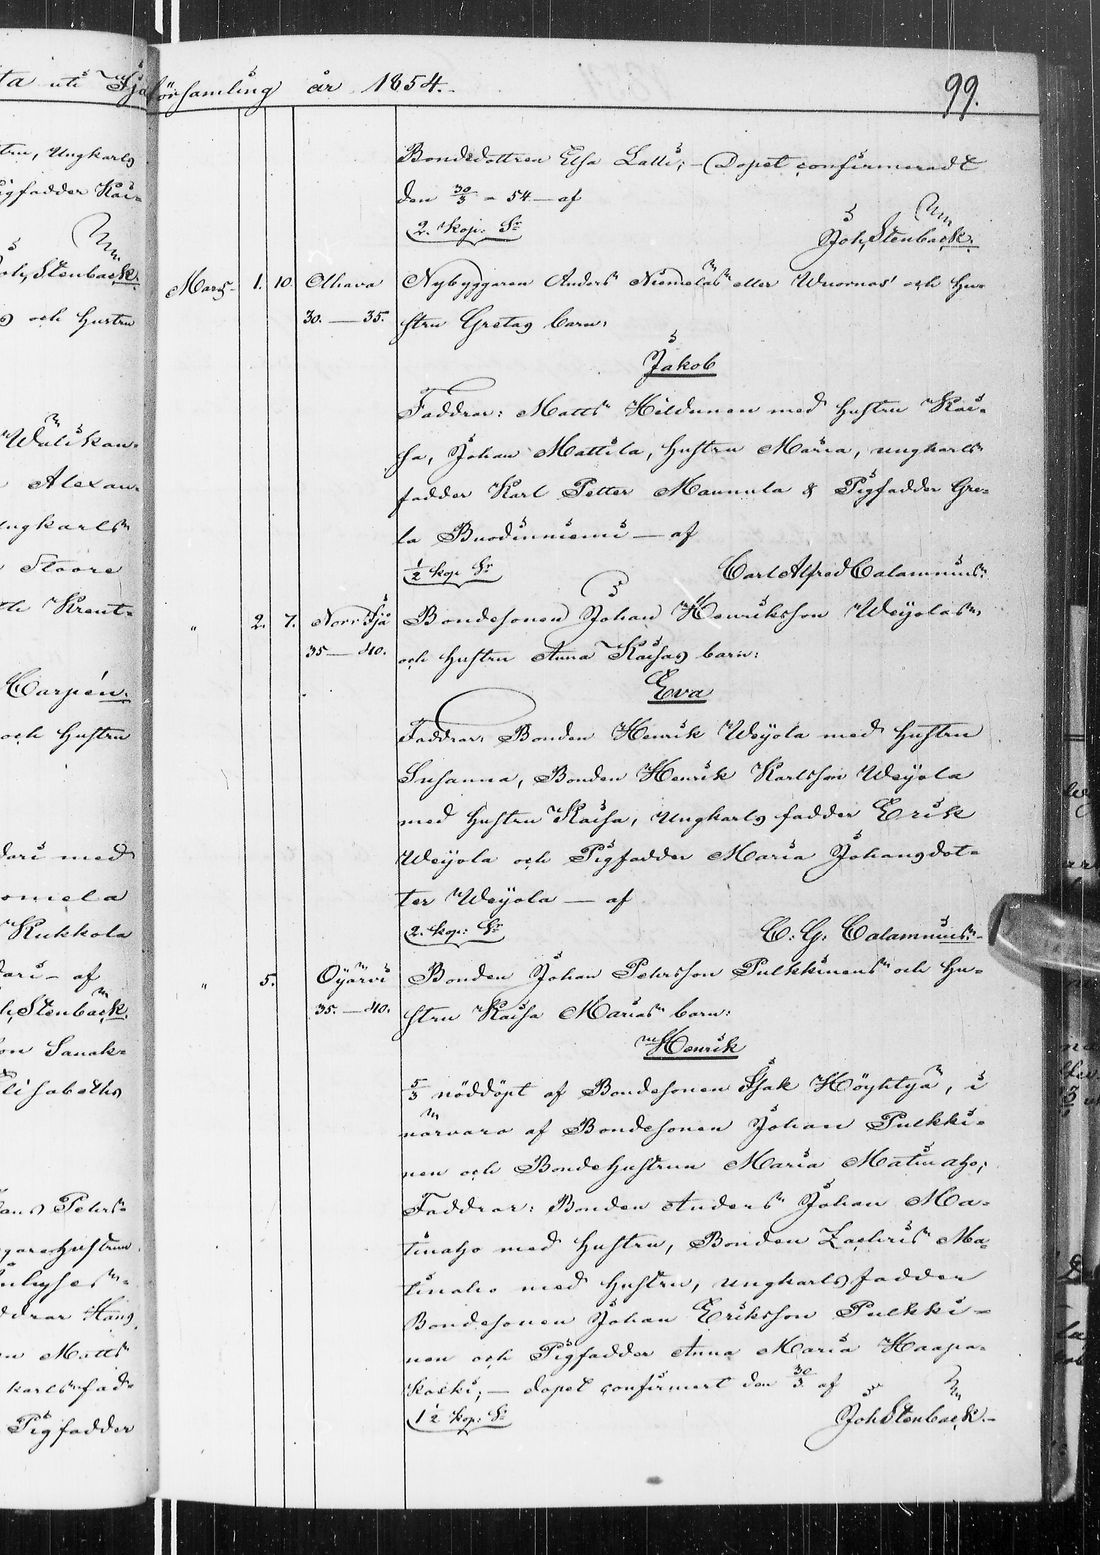 församling år 1854.
99.
Bondedottren Elsa Latti; – Dopet confirmeradt
den 30/3 – 54 – af
2. kop: Sr
Joh. Stenbäck.
Mars 1. 10. Olhava Nybyggaren Anders Niemeläs eller Wuornos och hu-
30. — 35. stru Gretas barn:
Jakob
Faddrar: Matts Hildunen med hustru Kai-
sa, Johan Mattila, hustru Maria, ungkarls
fadder Karl Petter Mannula & Pigfadder Gre-
ta Buodinniemi — af
1/2 kop. Sr
Carl Alfred Calamnius.
" 2. 7. Norr Ijå Bondesonen Johan Henriksson Weyolas
35 — 40. och hustru Anna Kaisas barn:
Eva
Faddrar: Bonden Henrik Weyola med hustru
Susanna, Bonden Henrik Karlsson Weyola
med hustru Kaisa, Ungkarls fadder Erik
Weyola och Pigfadder Maria Johansdot-
ter Weyola — af
2. kop: Sr
C. G. Calamnius.
" 5. Oijärvi Bonden Johan Pehrsson Pulkkinens och hu-
35. — 40. stru Kaisa Marias barn:
Henrik
5/3 nöddöpt af Bondesonen Isak Höyhtyä, i
närvaro af Bondesonen Johan Pulkki-
nen och Bondehustrun Maria Matinaho;
Faddrar: Bonden Anders Johan Ma-
tinaho med hustru, Bonden Zachris Ma-
tinaho med hustru, ungkarls fadder
Bondesonen Johan Eriksson Pulkki-
nen och Pigfadder Anna Maria Haapa-
koski; — dopet confirmert den 30/3 af
1 1/2 kop: Sr
Joh Stenbäck.